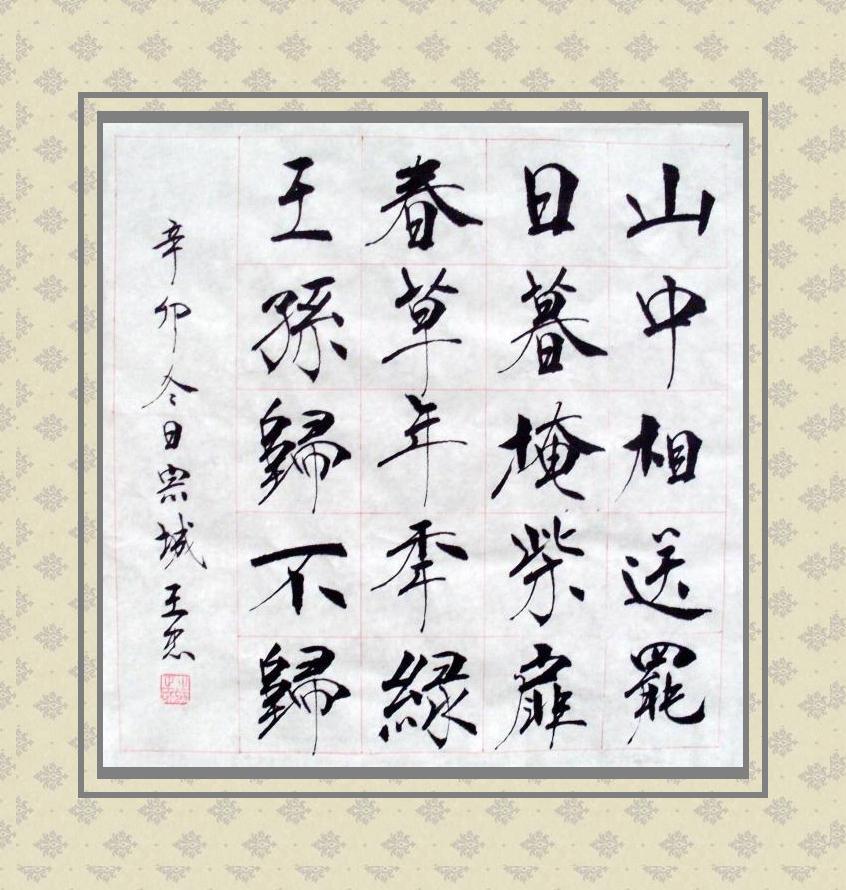 山中相送罷
日暮掩柴扉
春草年秊綠
王孫歸不歸
辛卯日城王